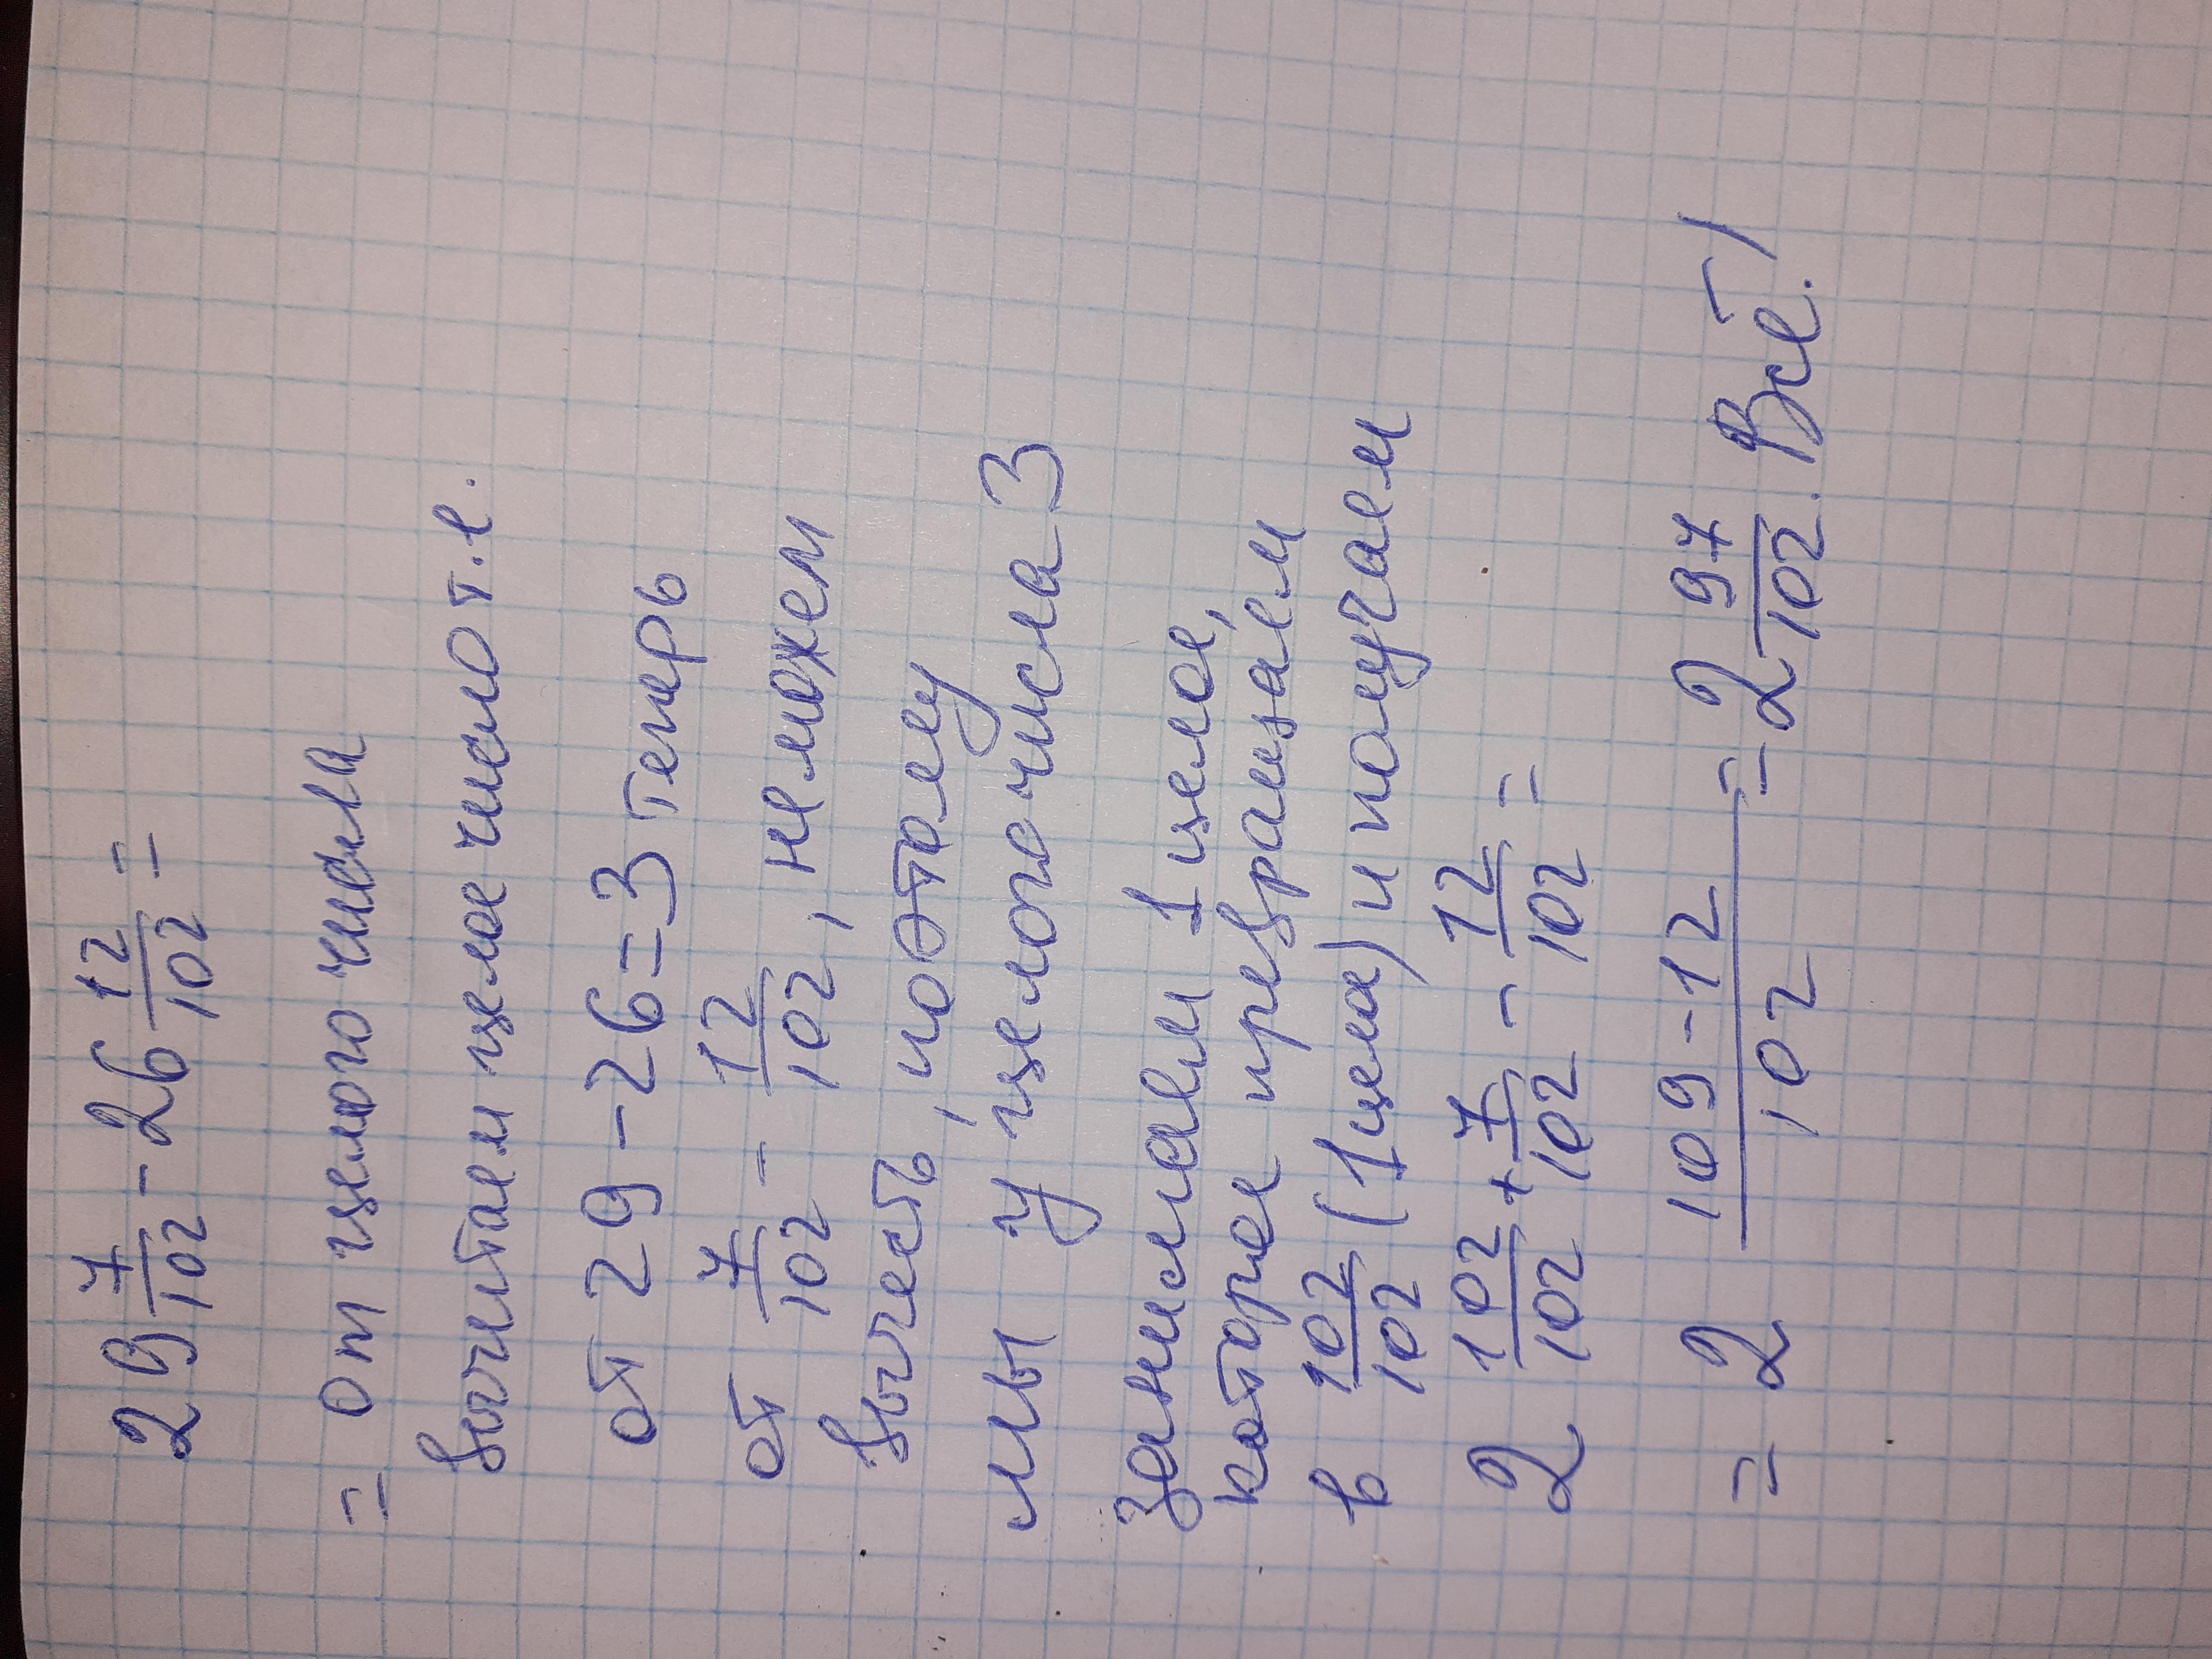 29 7/102 - 26 12/102 =
= от целого числа
вычитаем целое число т.е.
от 29 - 26 = 3 теперь
от 7/102 - 12/102, не можем
вычесть, поэтому
мы у целого числа 3
занимаем 1 целое,
которое превращаем
в 102/102 (1 цела) и получаем
2 102/102 + 7/102 - 12/102 =
= 2 109-12/102 = 2 97/102. Всё!